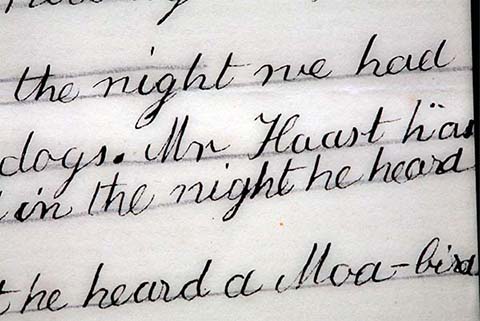 the night we had
dogs. Mr Haast häa
in the night he heard
he heard a Moa-bird